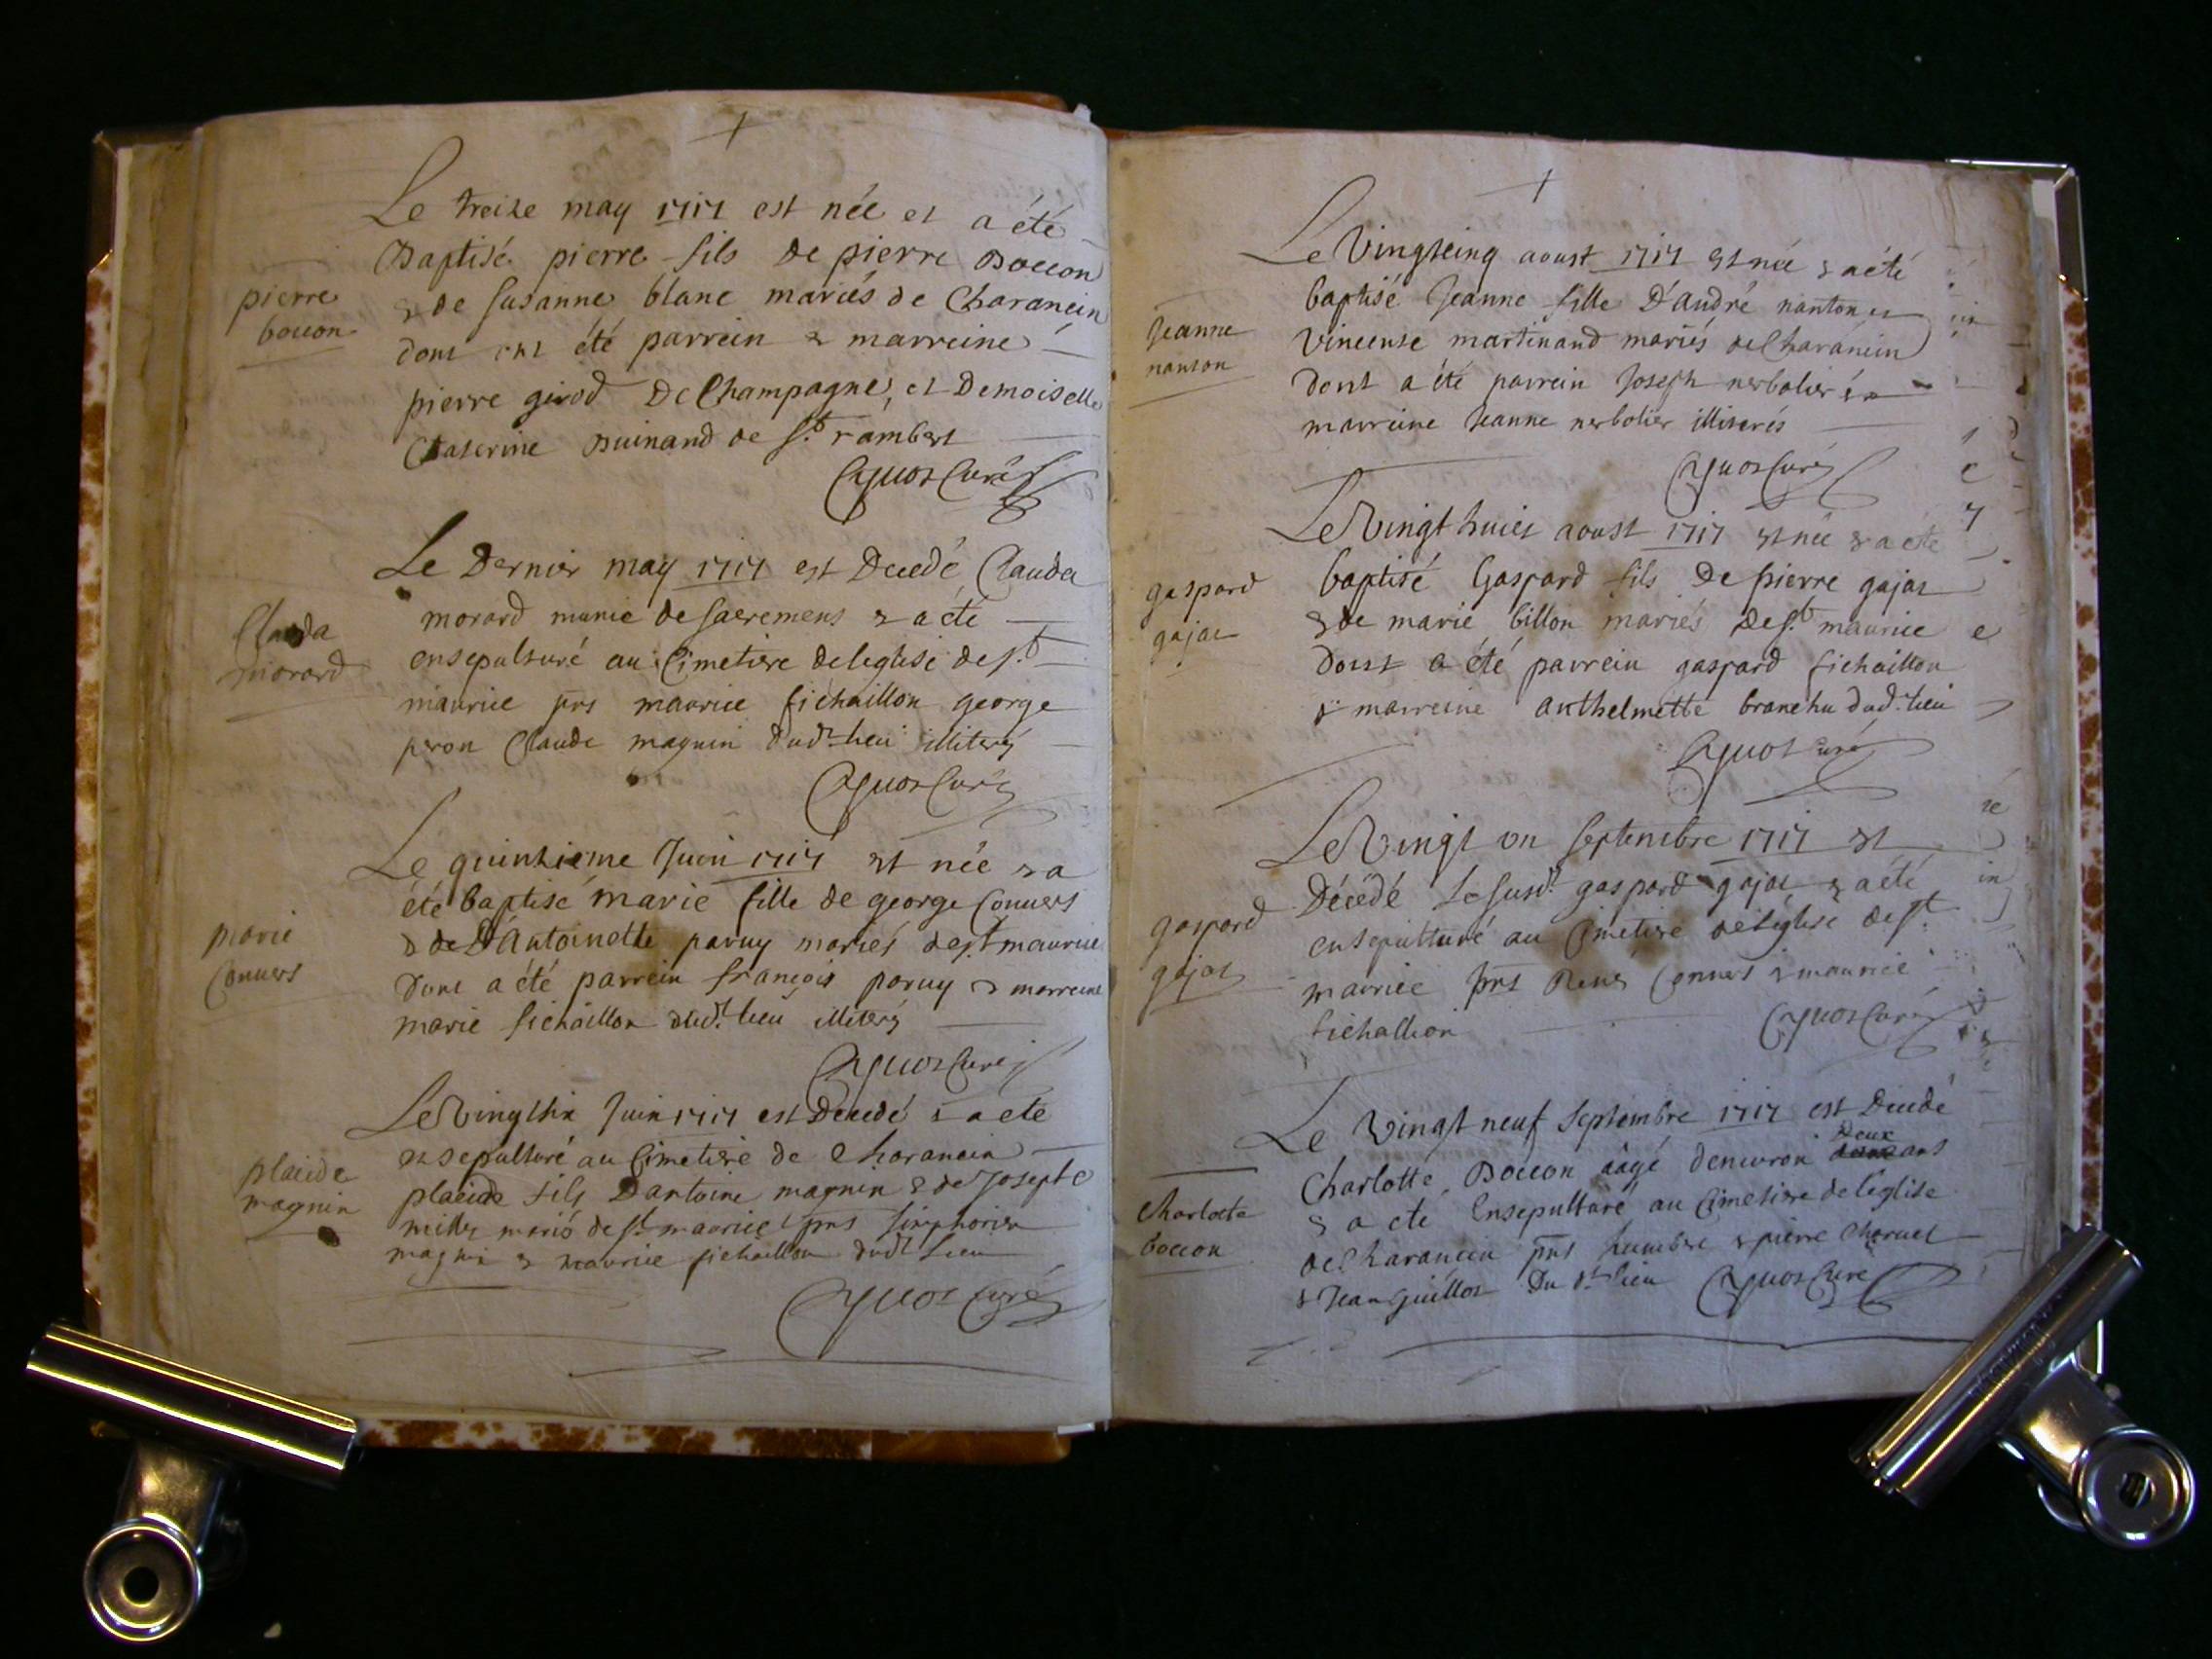 Le treize may 1717 est née et a été
Baptisé pierre fils de pierre Boccon
& de susanne blanc mariés de Charancin
dont ont été parrein & marreine
pierre girod De Champagne, et Demoiselle
Caterine Buinand de St. rambert
Cyuot Curé
pierre
boccon
Le Dernier may 1717 est Decedé Clauda
morard munie de sacremens & a été
ensepulturé au Cimetiere de leglise de St.
maurice pnt maurice fichaillon george
peron Claude magnin dudt. lieu illiterés
Cyuot Curé
Clauda
morard
Le quinzieme Juin 1717 est née & a
été baptisé marie fille de george Convers
& de D'Antoinette paruy mariés de St. maurice
dont a été parrein françois paruy & marreine
marie fichaillon dudt. lieu illiterés
Cyuot Curé
marie
Convers
Le Vingt six Juin 1717 est Decedé & a eté
ensepulturé au Cimetiere de Charancin
placide fils D'antoine magnin & de Josepte
mariés de St. maurice pnt simphorien
magnin & maurice fichaillon dudt lieu
Cyuot Curé
placide
magnin
Le Vingtcinq aoust 1717 est née & a été
baptisé Jeanne fille D'andré nanton et
Vincense martinand mariés de Charancin
dont a été parrein Joseph nerbolier &
marreine Jeanne nerbolier illiterés
Cyuot Curé
Jeanne
nanton
Le Vingt huict aoust 1717 est née & a été
baptisé Gaspard fils De pierre gajat
& de marie billon mariés de St. maurice
dont a été parrein gaspard fichaillon
& marreine anthelmette branchu dudt. lieu
Cyuot Curé
gaspard
gajat
Le Vingt un septembre 1717 est
Décédé Le susdt. gaspard gajat & a été
ensepulturé au Cimetiere de léglise de St.
maurice pnt René Convers & maurice
fichallion
Cyuot Curé
gaspard
gajat
Le Vingt neuf Septembre 1717 est Decedé
Deux
Charlotte Boccon aâgé denviron ans
& a eté Ensepulturé au Cimetiere de léglise
de Charancin pnt humbert & pierre Charvet
& Jean guillot Du dt. lieu Cyuot Curé
Charlotte
boccon